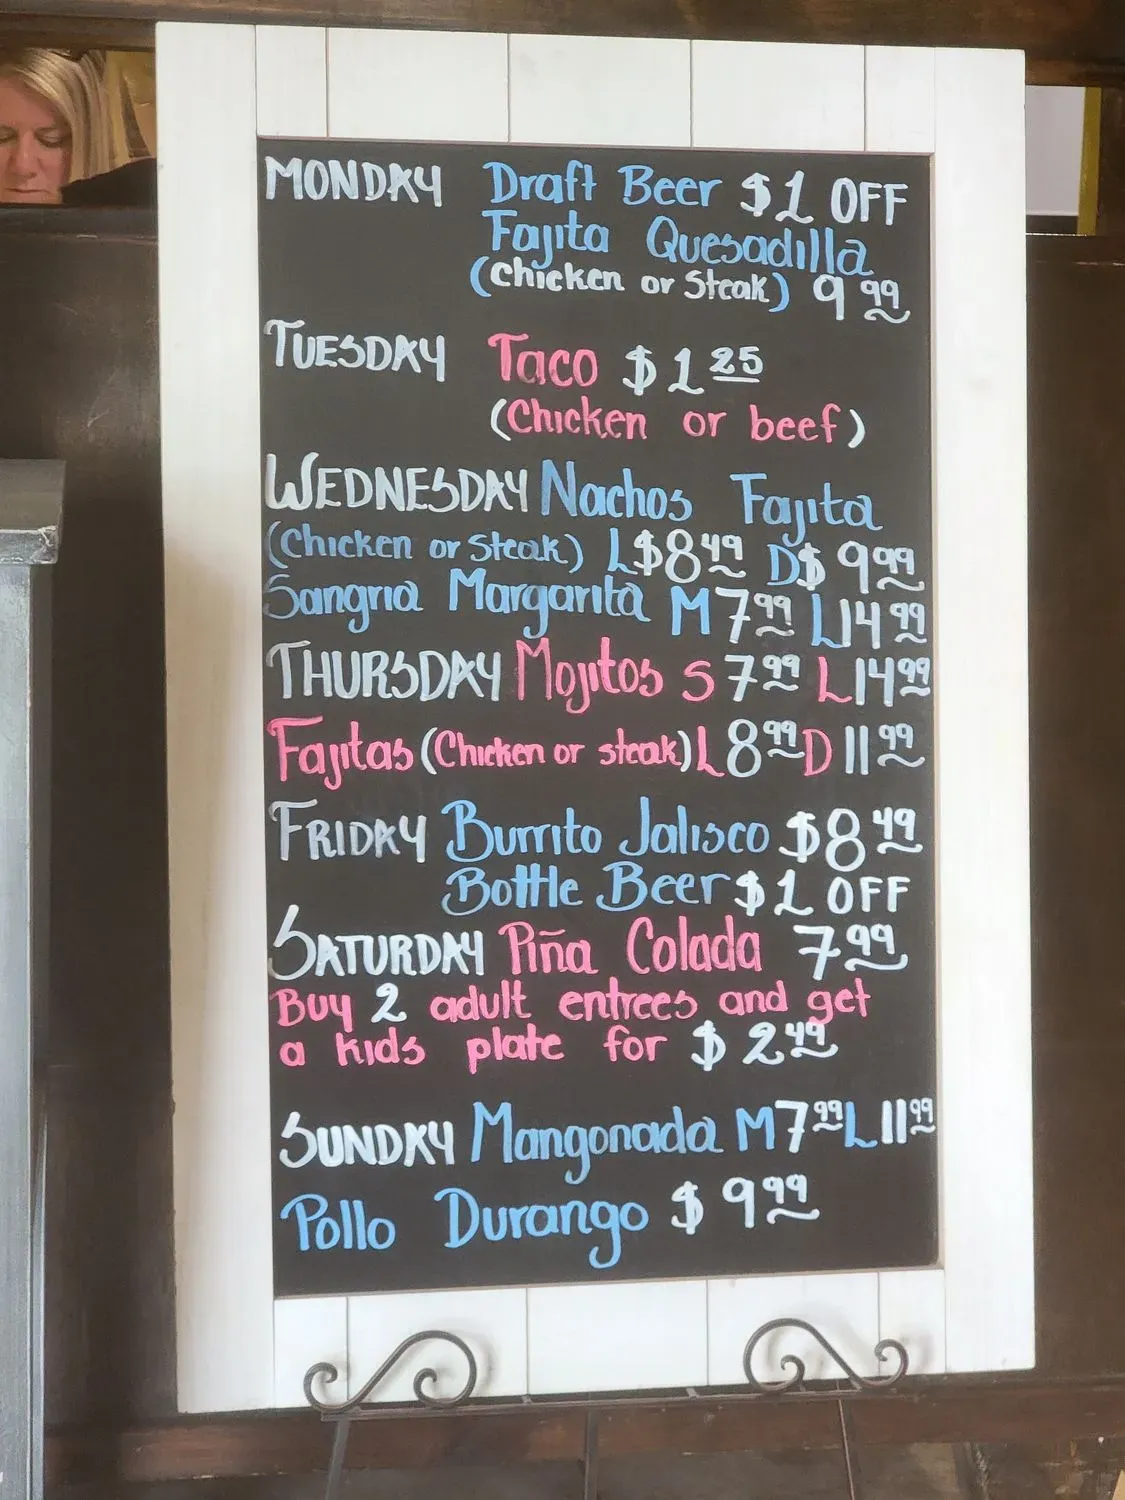 MONDAY Draft Beer $1 OFF
Fajita Quesadilla
(Chicken or Steak) 9 99
TUESDAY Taco $1 25
(Chicken or beef)
WEDNESDAY Nachos Fajita
(Chicken or Steak) L$8 49 D$9 99
Sangria Margarita M 7 99 L14 99
THURSDAY Mojitos S 7 99 L14 99
Fajitas (Chicken or steak) L 8 99 D 11 99
FRIDAY Burrito Jalisco $8 49
Bottle Beer $1 OFF
SATURDAY Piña Colada 7 99
Buy 2 adult entrees and get
a kids plate for $2 49
SUNDAY Mangonada M7 99 L11 99
Pollo Durango $9 99